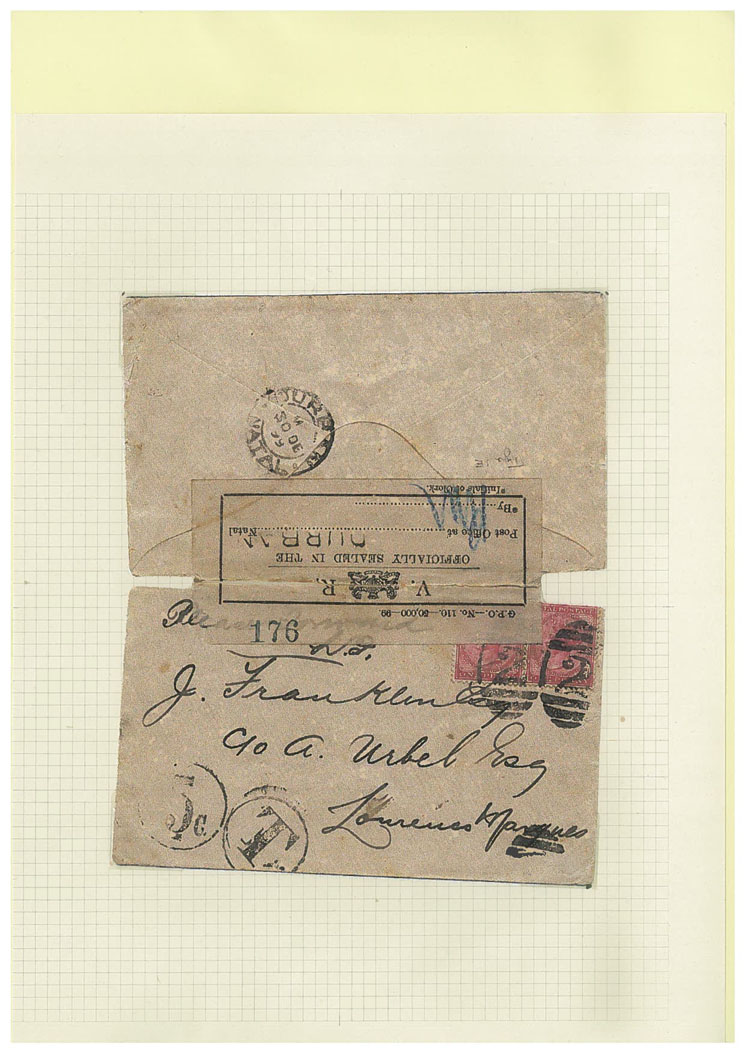 DURBAN
30 DE
99
NATAL
*Initials of Clerk.
*By
Post Office at DURBAN Natal
OFFICIALLY SEALED IN THE
V. R.
G.P.O.—No. 110.—50,000 99.
176
Please forward
J. Franklin Esq
c/o A. Urbel Esq
Lourenco Marques
2 2
5c
T